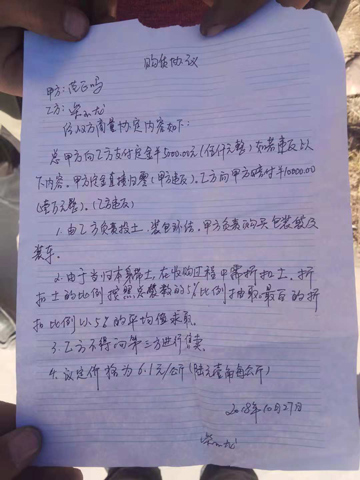 购货协议
甲方：范正鸣
乙方：
经双方商量协定内容如下：
总甲方向乙方支付定金¥5000.00元(伍仟元整)如若违反以
下内容。甲方定金直接归零(甲方违反)。乙方向甲方赔付¥10000.00
(壹万元整)。(乙方违反)
1. 由乙方负责抖土、装包环结，甲方负责购买包装袋及
装车。
2. 由于当归本身带土，在收购过程中需折扣土，折
扣土的比例按照总袋数的5%比例抽取，最后的折
扣比例以5%的平均值来取。
3. 乙方不得向第三方进行售卖。
4. 议定价格为6.1元/公斤(陆元壹角每公斤)
2018年10月27日